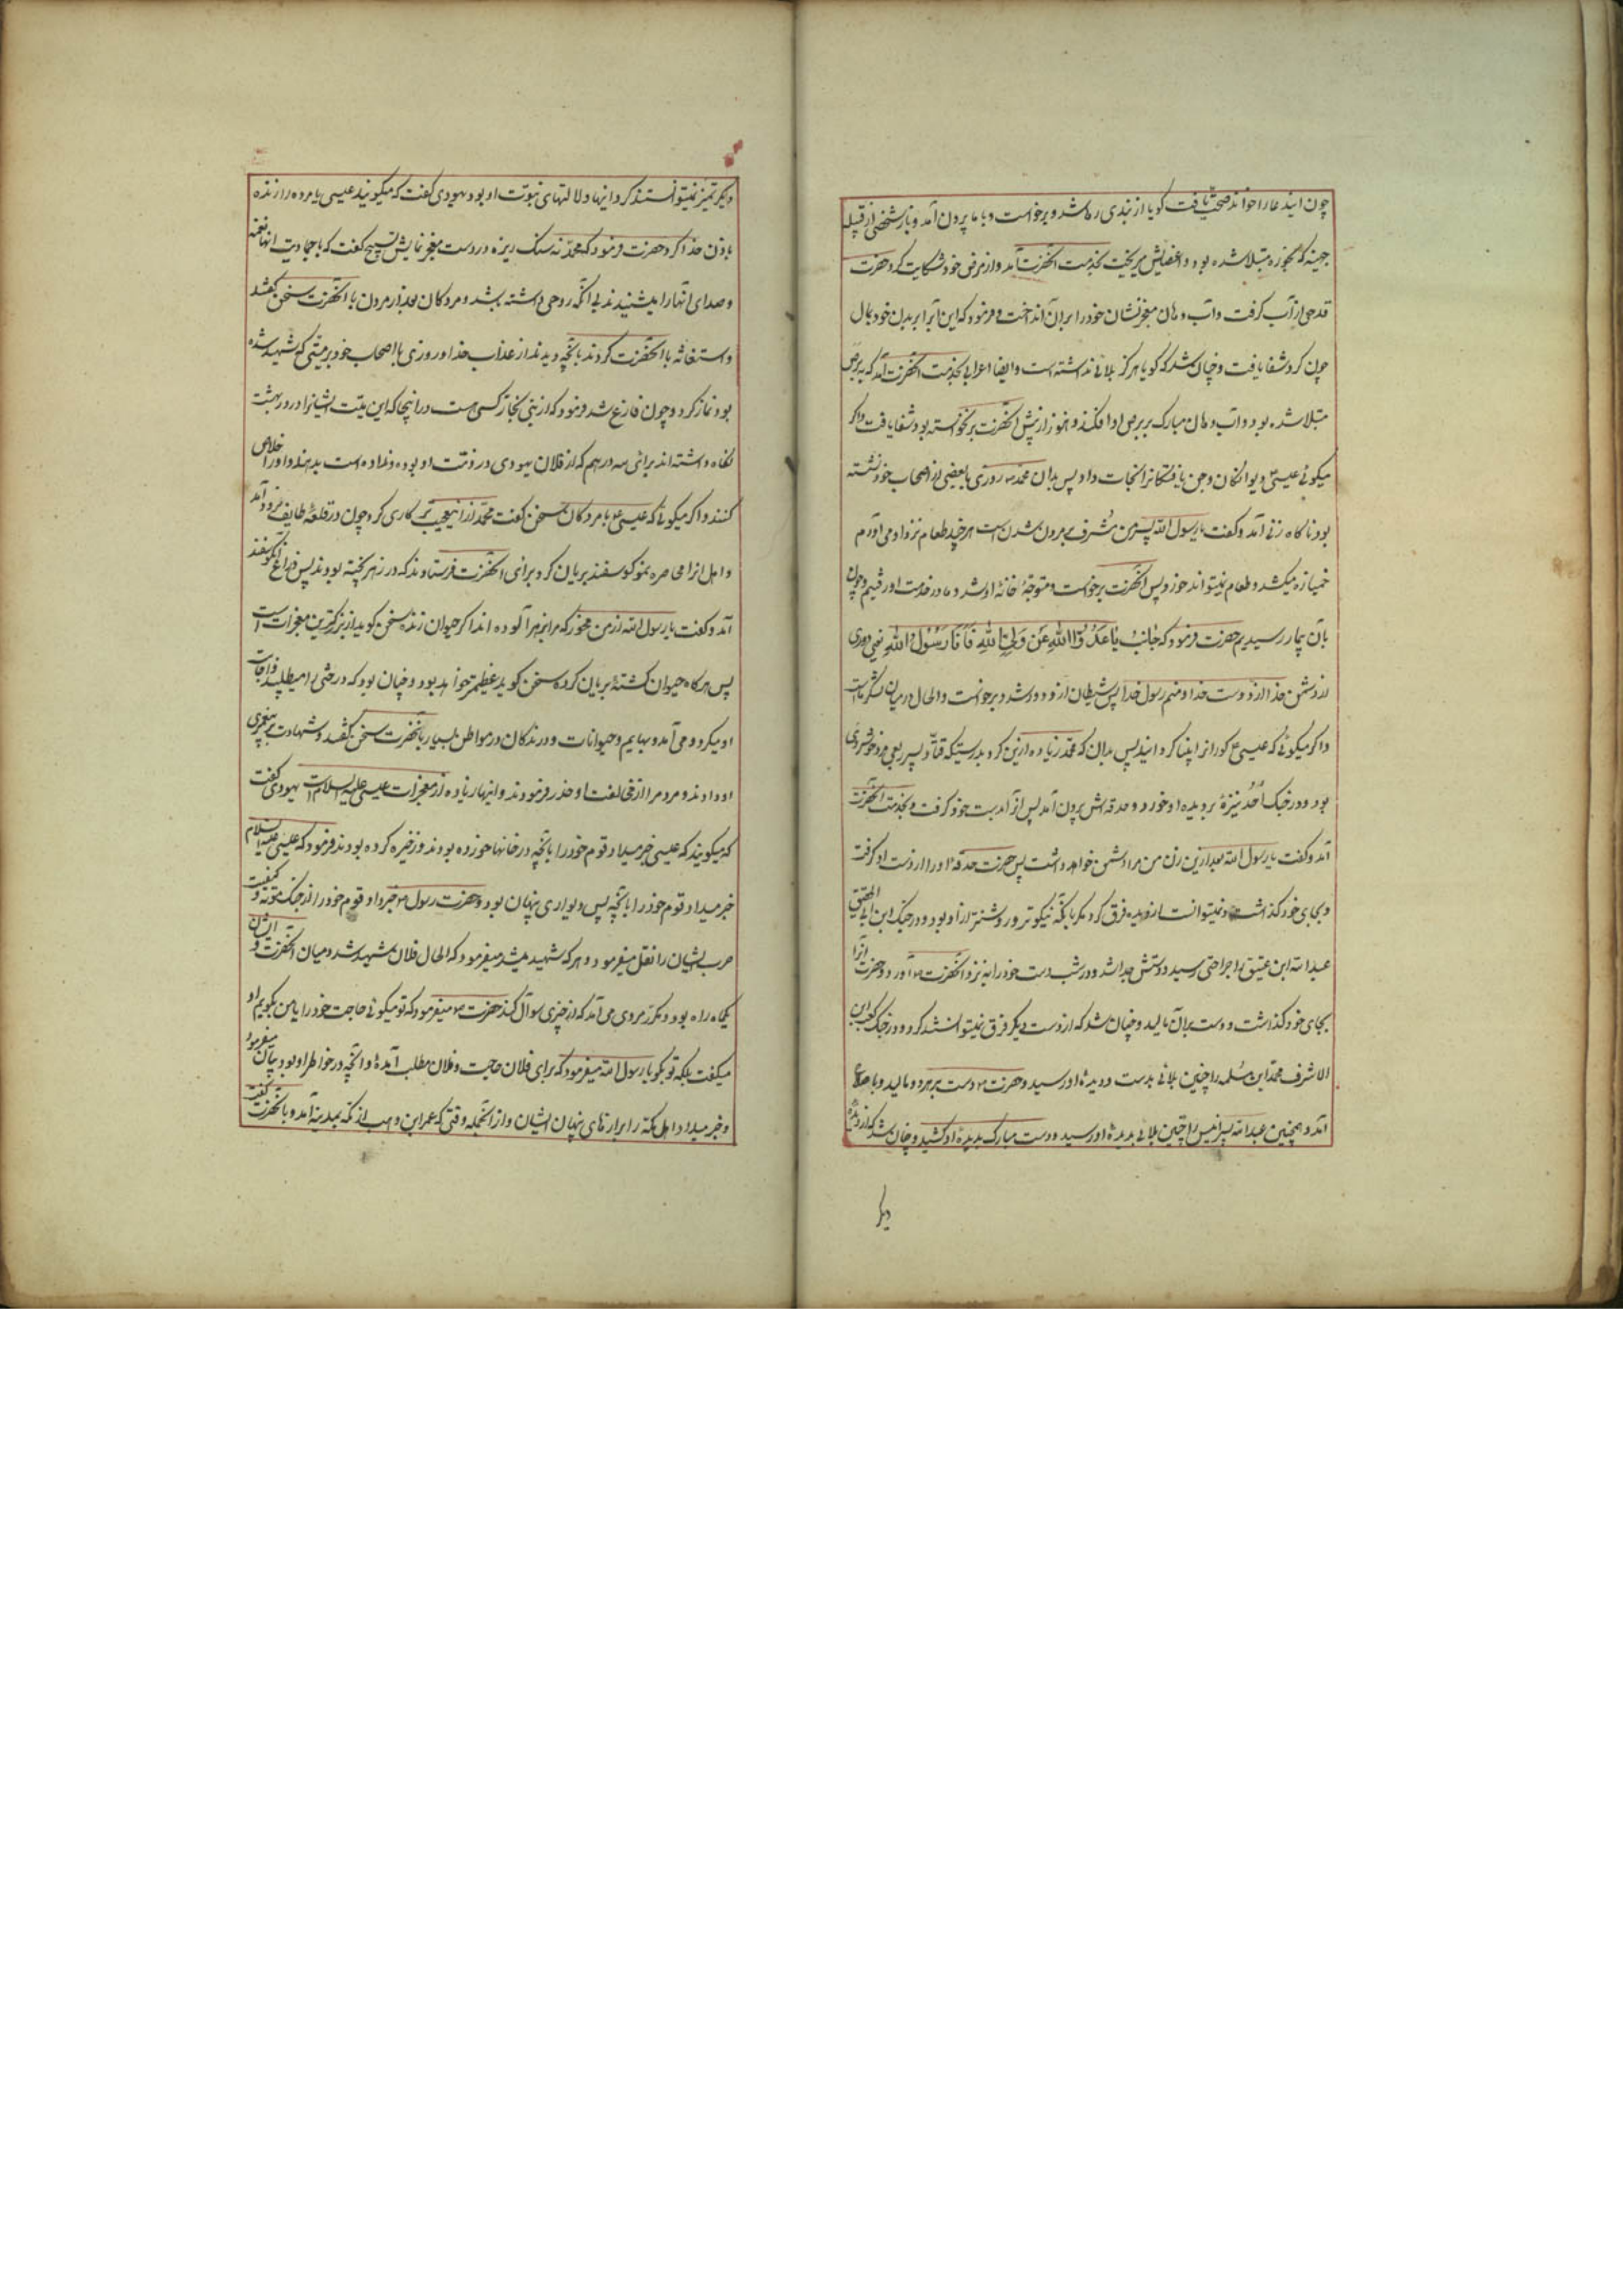 چون این دعا را خواند صحت یافت که گویا از بندی رها شد و برخواست و با ما بیرون آمد و باز شخصی از قبیله
جهینه که بخوره مبتلا شده بود و اعضایش میریخت بخدمت آنحضرت آمد و از مرض خود شکایت کرد حضرت
قدحی از آب گرفت و آب دهان معجز نشان خود را بر آن انداخت و فرمود که این آبرا بر بدن خود بمال
چون کرد شفا یافت و چنان شد که گویا هرگز بلائی نداشته است و ایضا اعرابی بخدمت آنحضرت آمد که به برص
مبتلا شده بود و آب دهان مبارک بر برص او افکند و هنوز از پیش آنحضرت برنخواسته بود شفا یافت و اگر
میگوئی عیسی دیوانگان و جن یافتگانرا نجات داد پس بدان محمد ص روزی با بعضی از اصحاب خود نشسته
بود ناگاه زنی آمد و گفت یا رسول الله پسر من مشرف بر مردن شدن است هر چند طعام نزد او می آورم
خمیازه میکشد و طعام نمیتواند خورد پس آنحضرت برخواست و متوجهٔ خانهٔ او شد و ما در خدمت او رفتیم و چون
بآن بیمار رسیدیم حضرت فرمود که جانب یا عدو الله عن ولی الله فانا رسول الله یعنی دوری
از دشمن خدا از دوست خدا و منم رسول خدا پس شیطان از او دور شد و برخواست و الحال در میان لشکر ما است
و اگر میگوئی که عیسی ع کورانرا بینا گردانید پس بدان که محمد زیاده ازین کرد بدرستیکه قتاده پسر ربعی مرد خوشروی
بود و در جنگ اُحُد نیزهٔ بر دیده او خورد و حدقه اش بیرون آمد پس آنرا بدست خود گرفت و بخدمت آنحضرت
آمد و گفت یا رسول الله بعد ازین زن من مرا دشمن خواهد داشت پس حضرت حدقهٔ او را از دست او گرفت
و بجای خود گذاشت و نمیتوانست از دیده فرق کرد مگر بآنکه نیکوتر و روشنتر از او بود و در جنگ ابن ابی الحقیق
عبدالله ابن عتیق را جراحتی رسید و دستش جدا شد و در شب دست خود را به نزد آنحضرت ص آورد و حضرت آنرا
بجای خود گذاشت و دست بر آن مالید و چنان شد که از دست دیگر فرق نمیتوانستند کرد و در جنگ کعب ابن
الاشرف محمد ابن مسلمه را چنین بلائی بدست و دیدهٔ او رسید و حضرت ص دست بر هر دو مالید و باصلاح
آمد و همچنین عبدالله پسر انیس را چنین بلائی بدیدهٔ او رسید و دست مبارک بدیدهٔ او کشید و چنان شد که از دیدهٔ
دیگر
دیگر تمیز نمیتوانستند کرد و اینها دلالتهای نبوّت او بود یهودی گفت که میگویند عیسی ع مرده را زنده
باذن خدا کرد حضرت فرمود که محمّد نه سنک ریزه در دست معجز نمایش تسبیح گفت که با جمادیت آنها نغمه
و صدای آنها را میشنیدند بی آنکه روحی داشته باشد و مردکان بعد از مردن با آنحضرت سخن گفتند
و استغاثه با آنحضرت کردند بآنچه دیدند از عذاب خدا و روزی با اصحاب خود بر میّتی که شهید شده
بود نماز کرد و چون فارغ شد فرمود که از بنی نجار کسی هست در اینجا که این میّت ایشانرا در در بهشت
نگاه داشته اند برای سه درهم که از فلان یهودی در ذمت او بوده و نداده است بدهند و او را خلاص
کنند و اگر میگوئی که عیسی ع با مردکان سخن گفت محمّد از این عجیب تر کاری کرد چون در قلعهٔ طایف فرود آمد
و اهل آنرا محاصره نمود گوسفند بریان کرد برای آنحضرت فرستادند که در زهر پخته بودند پس ذراع آن گوسفند
آمد و گفت یا رسول الله از من مخور که مرا بزهر آلوده اند اگر حیوان زنده سخن گوید از بزرگترین معجزات است
پس هرگاه حیوان کشتهٔ بریان کرده سخن گوید عظیم تر خواهد بود و چنان بود که درختی را میطلبید و اجابت
او میکرد و می آمد و بهایم و حیوانات و درندگان در مواطن بسیار بآنحضرت سخن گفتند و شهادت بر پیغمبری
او دادند و مردم را از مخالفت او حذر فرمودند و اینها زیاده از معجزات عیسی علیه السلام است یهودی گفت
که میگویند که عیسی خبر میداد قوم خود را بآنچه در خانها خورده بودند و ذخیره کرده بودند فرمود که عیسی علیه السلام
خبر میداد قوم خود را بآنچه پس دیواری پنهان بود و حضرت رسول ص خبر داد قوم خود را از جنگ موته و کیفیت
حرب ایشان را نقل میفرمود و هر که شهید میشد میفرمود که الحال فلان شهید شد و میان آنحضرت و ایشان
یکماه راه بود و مکرّر مردی می آمد که از چیزی سوال کند حضرت ص میفرمود که تو میگوئی حاجت خود را یا من بگویم او
میگفت بلکه تو بگو یا رسول الله میفرمود که برای فلان حاجت و فلان مطلب آمدهٔ و آنچه در خواطر او بود بیان میفرمود
و خبر میداد اهل مکّه را برازهای پنهان ایشان و از آنجمله وقتی که عمیر ابن وهب از مکه بمدینه آمد و بآنحضرت گفت